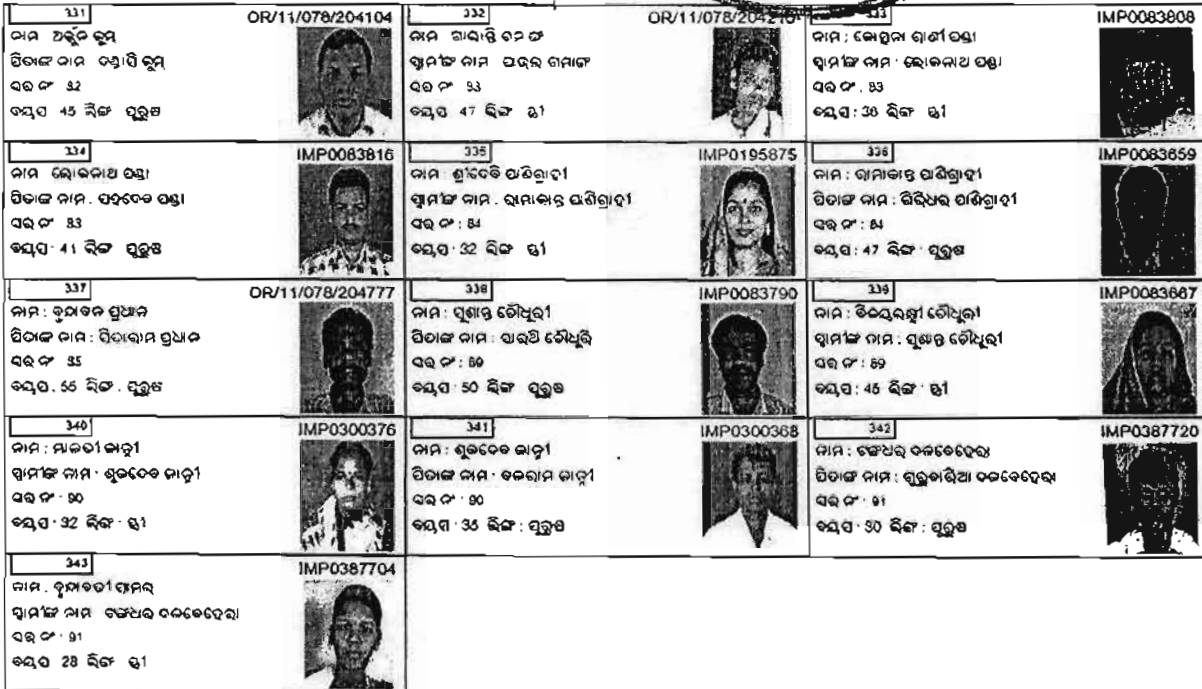 331 OR/11/078/204104
ନାମ ଅର୍ଜୁନ କୁମ୍
ପିତାଙ୍କ ନାମ ଦଣ୍ଡାସି କୁମ୍
ଘର ନଂ 82
ବୟସ 45 ଲିଙ୍ଗ ପୁରୁଷ
332
ନାମ
ସ୍ଵାମୀଙ୍କ ନାମ
ଘର ନଂ 83
ବୟସ 47 ଲିଙ୍ଗ ସ୍ତ୍ରୀ
333 IMP0083808
ନାମ : ଜୋତ୍ସ୍ନା ରାଣୀ ପଣ୍ଡା
ସ୍ଵାମୀଙ୍କ ନାମ : ଲୋକନାଥ ପଣ୍ଡା
ଘର ନଂ . 83
ବୟସ : 36 ଲିଙ୍ଗ ସ୍ତ୍ରୀ
334 IMP0083816
ନାମ ଲୋକନାଥ ପଣ୍ଡା
ପିତାଙ୍କ ନାମ . ସହଦେବ ପଣ୍ଡା
ଘର ନଂ 83
ବୟସ · 41 ଲିଙ୍ଗ ପୁରୁଷ
335 IMP0195875
ନାମ : ଶ୍ରୀଦେବି ପାଣିଗ୍ରାହୀ
ସ୍ଵାମୀଙ୍କ ନାମ . ରାମାକାନ୍ତ ପାଣିଗ୍ରାହୀ
ଘର ନଂ : 84
ବୟସ · 32 ଲିଙ୍ଗ ସ୍ତ୍ରୀ
336 IMP0083659
ନାମ : ରାମାକାନ୍ତ ପାଣିଗ୍ରାହୀ
ପିତାଙ୍କ ନାମ : ଗିରିଧର ପାଣିଗ୍ରାହୀ
ଘର ନଂ : 84
ବୟସ : 47 ଲିଙ୍ଗ · ପୁରୁଷ
337 OR/11/078/204777
ନାମ : ବୃନ୍ଦାବନ ପ୍ରଧାନ
ପିତାଙ୍କ ନାମ : ସିତାରାମ ପ୍ରଧାନ
ଘର ନଂ 85
ବୟସ . 55 ଲିଙ୍ଗ . ପୁରୁଷ
338 IMP0083790
ନାମ : ସୁଶାନ୍ତ ଚୌଧୂରୀ
ପିତାଙ୍କ ନାମ : ସାରଥି ଚୌଧୂରି
ଘର ନଂ : 89
ବୟସ · 50 ଲିଙ୍ଗ ପୁରୁଷ
339 IMP0083667
ନାମ : ବିଜୟଲକ୍ଷ୍ମୀ ଚୌଧୂରୀ
ସ୍ଵାମୀଙ୍କ ନାମ . ସୁଶାନ୍ତ ଚୌଧୂରୀ
ଘର ନଂ : 89
ବୟସ : 45 ଲିଙ୍ଗ · ସ୍ତ୍ରୀ
340 IMP0300376
ନାମ : ମାଳତୀ ଜାନ୍ନୀ
ସ୍ଵାମୀଙ୍କ ନାମ · ଶୁକଦେବ ଜାନ୍ନୀ
ଘର ନଂ · 90
ବୟସ · 32 ଲିଙ୍ଗ · ସ୍ତ୍ରୀ
341 IMP0300368
ନାମ : ଶୁକଦେବ ଜାନ୍ନୀ
ପିତାଙ୍କ ନାମ · ବଳରାମ ଜାନ୍ନୀ
ଘର ନଂ · 90
ବୟସ · 36 ଲିଙ୍ଗ : ପୁରୁଷ
342 IMP0387720
ନାମ : ଟଙ୍କଧର ଦଳବେହେରା
ପିତାଙ୍କ ନାମ : ଗୁରୁବାରିଆ ଦଳବେହେରା
ଘର ନଂ · 91
ବୟସ · 30 ଲିଙ୍ଗ : ପୁରୁଷ
343 IMP0387704
ନାମ . ବୃନ୍ଦାବତୀ
ସ୍ଵାମୀଙ୍କ ନାମ ଟଙ୍କଧର ଦଳବେହେରା
ଘର ନଂ · 91
ବୟସ 28 ଲିଙ୍ଗ ସ୍ତ୍ରୀ